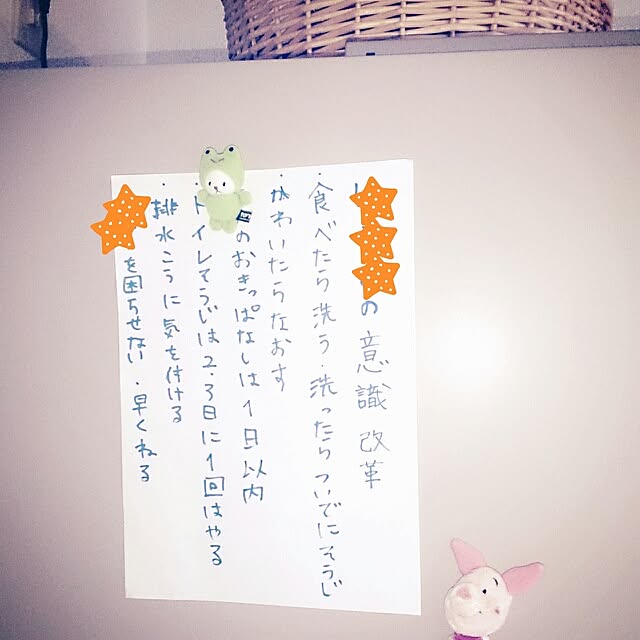 の意識改革
・食べたら洗う・洗ったらついでにそうじ
・かわいたらなおす
のおきっぱなしは1日以内
・トイレそうじは2・3日に1回はやる
・排水こうに気を付ける
を困らせない・早くねる